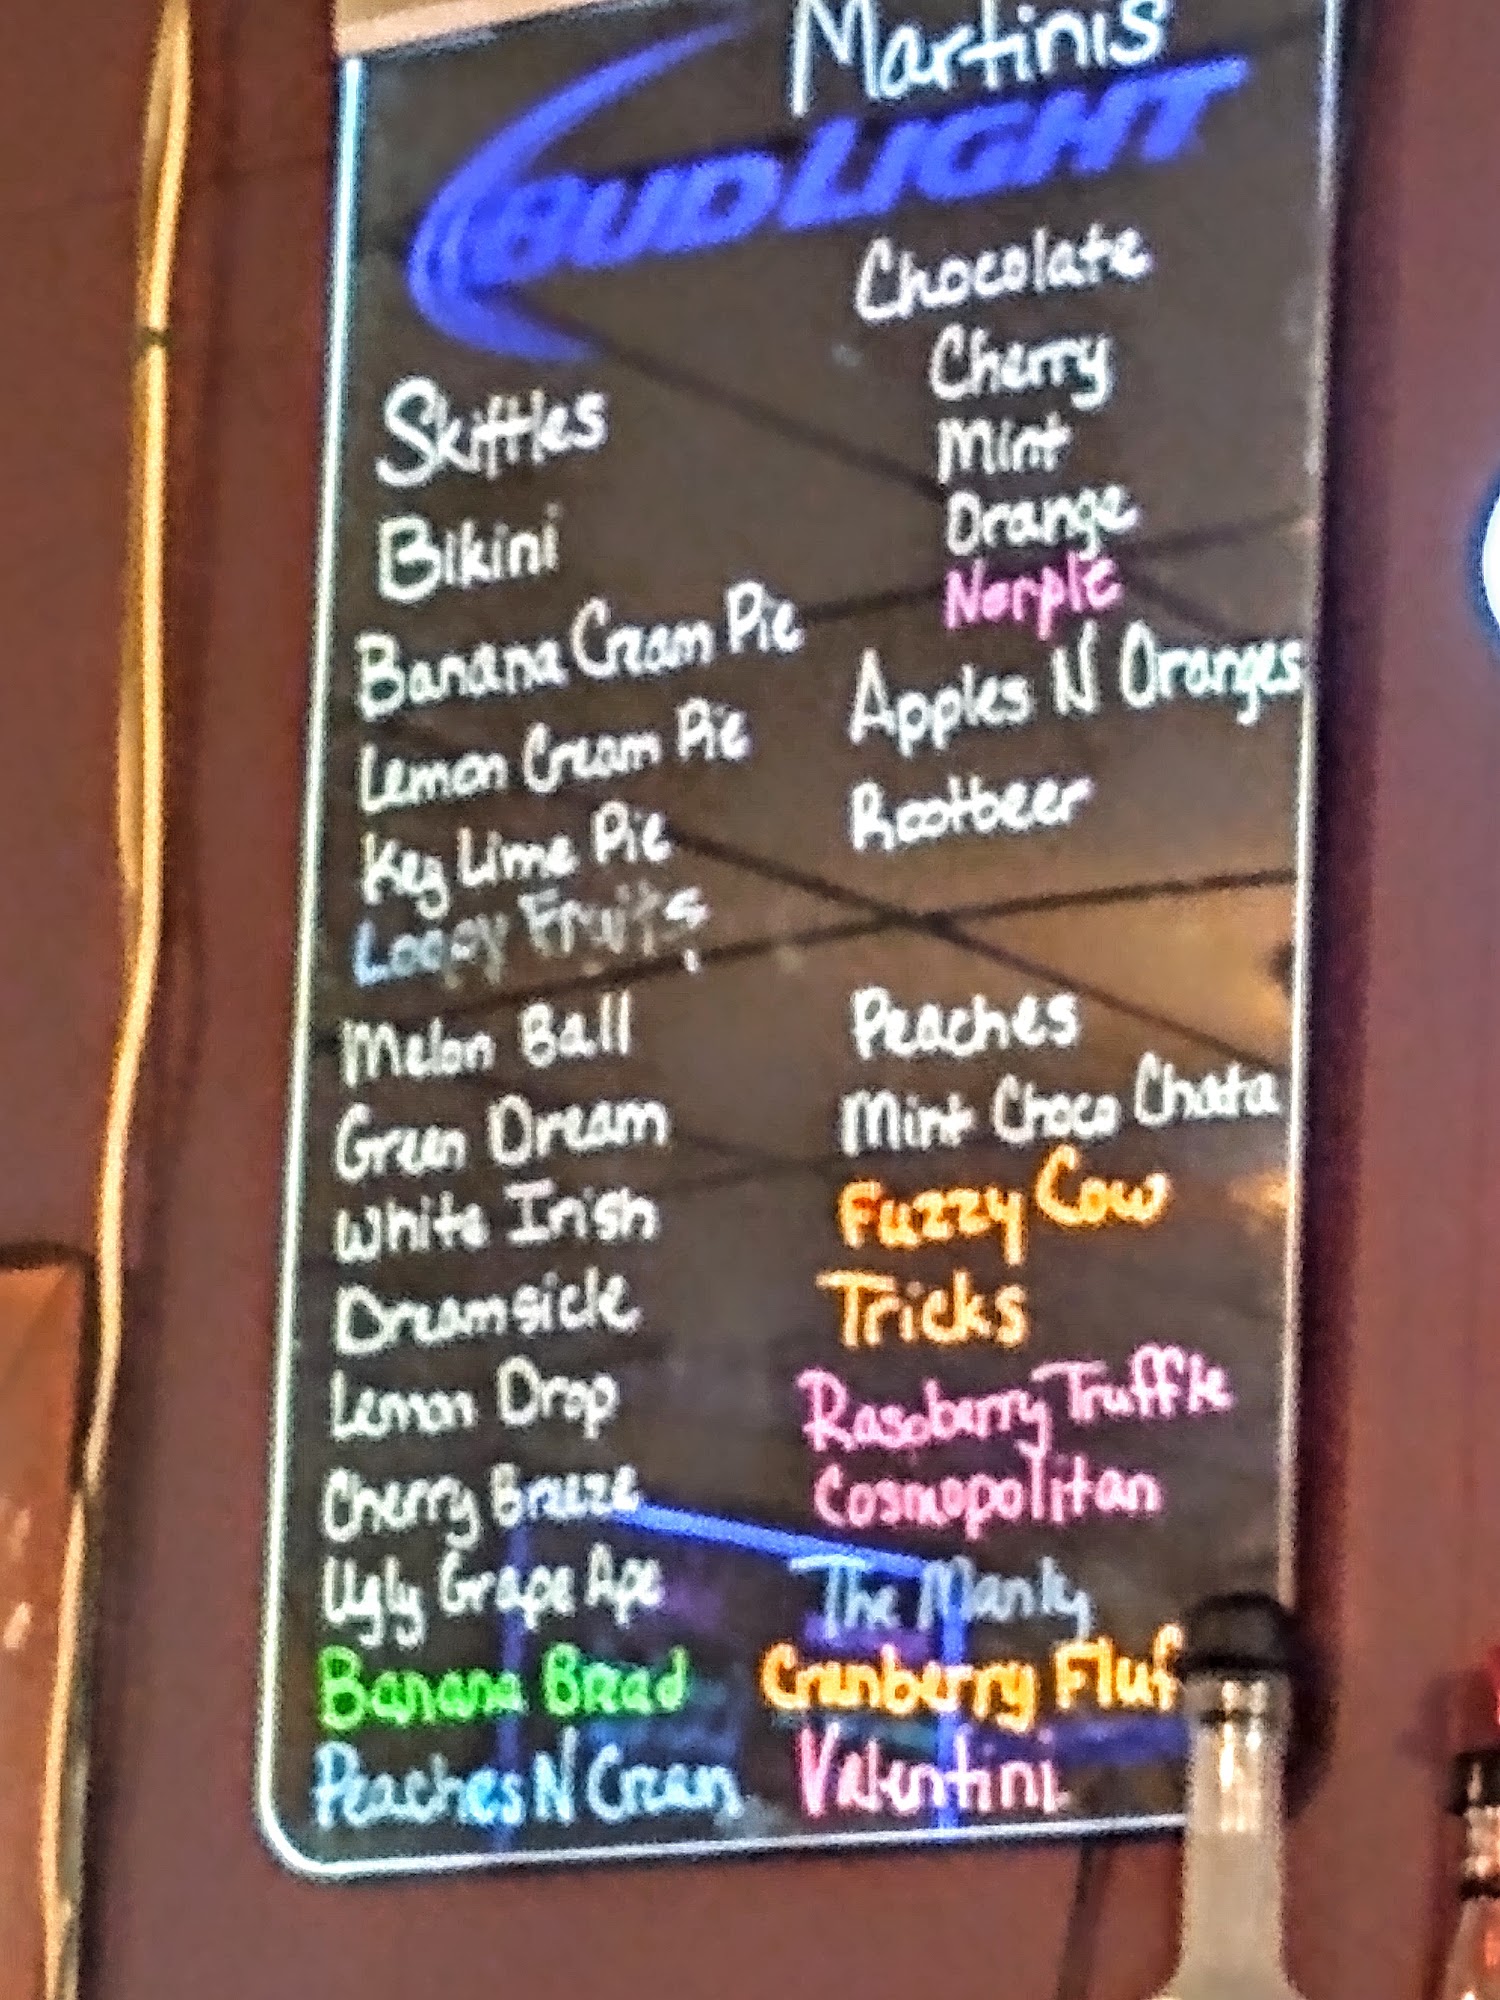 Martinis
BUD LIGHT
Skittles
Bikini
Banana Cream Pie
Lemon Cream Pie
Key Lime Pie
Loopy Fruits
Melon Ball
Green Dream
White Irish
Dreamsicle
Lemon Drop
Cherry Breeze
Ugly Grape Ape
Banana Bread
Peaches N Cream
Chocolate
Cherry
Mint
Orange
Nerple
Apples N Oranges
Rootbeer
Peaches
Mint Choco Chata
Fuzzy Cow
Tricks
Raspberry Truffle
Cosmopolitan
The Manly
Cranberry Fluf
Valentini